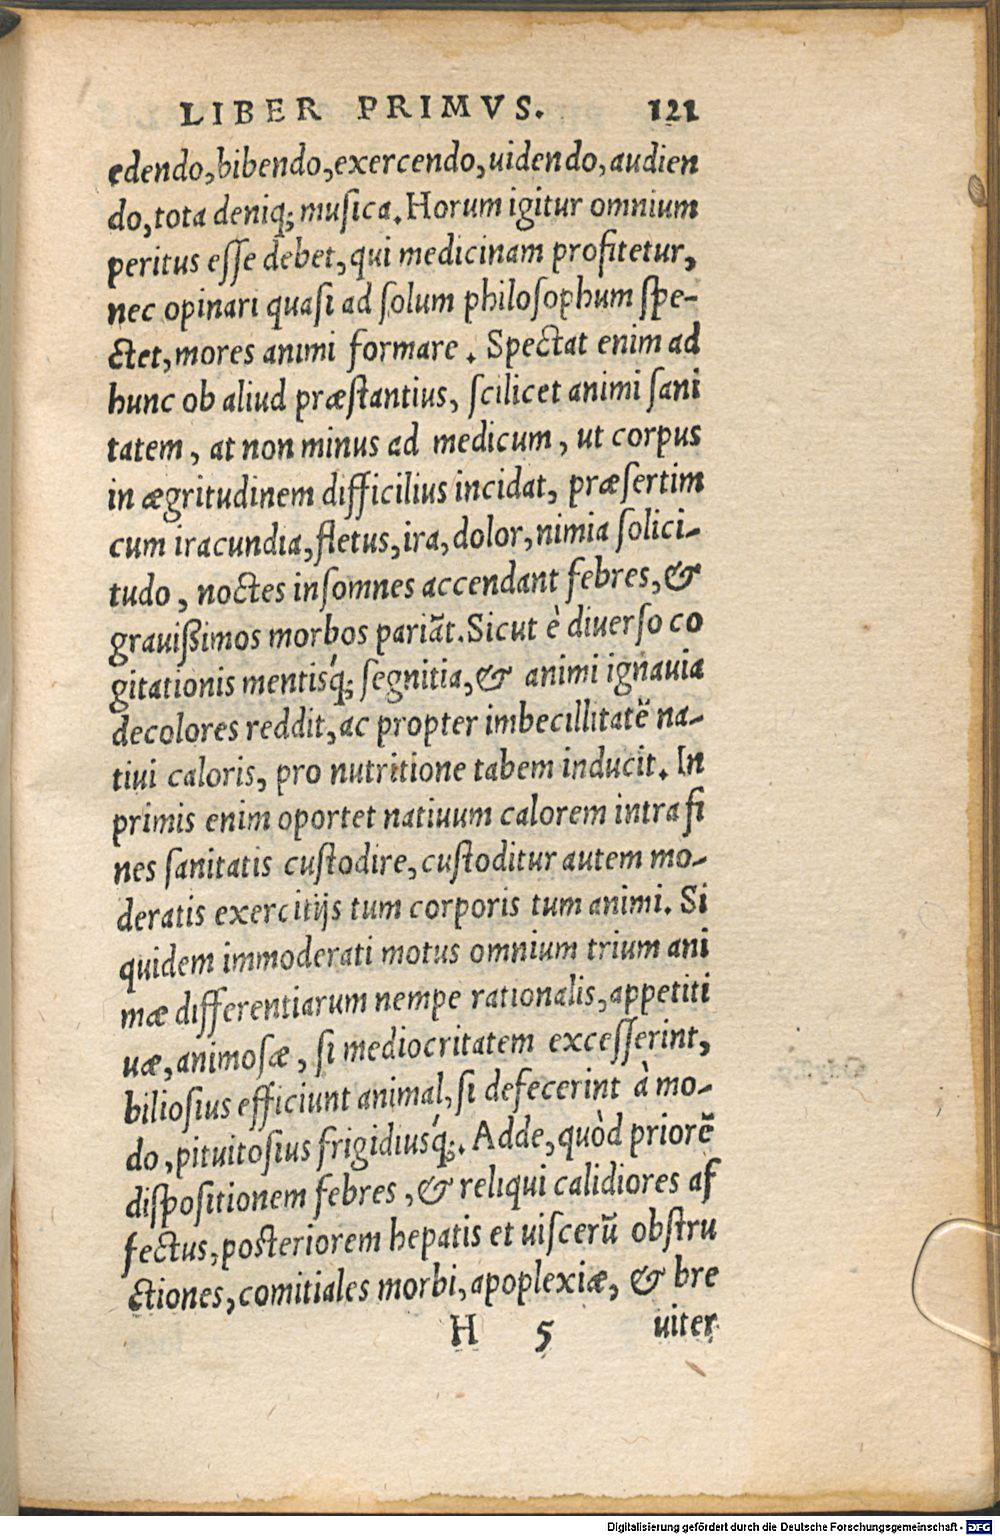 LIBER PRIMVS. 121
edendo, bibendo, exercendo, uidendo, audien
do, tota deniq; musica. Horum igitur omnium
peritus eſſe debet, qui medicinam profitetur,
nec opinari quaſi ad ſolum philoſophum ſpe-
ctet, mores animi formare. Spectat enim ad
hunc ob aliud præſtantius, ſcilicet animi ſani
tatem, at non minus ad medicum, ut corpus
in ægritudinem difficilius incidat, præſertim
cum iracundia, fletus, ira, dolor, nimia ſolici-
tudo, noctes inſomnes accendant febres, &
grauißimos morbos pariãt. Sicut è diuerſo co
gitationis mentisq́; ſegnitia, & animi ignauia
decolores reddit, ac propter imbecillitatẽ na-
tiui caloris, pro nutritione tabem inducit. In
primis enim oportet natiuum calorem intra fi
nes ſanitatis cuſtodire, cuſtoditur autem mo-
deratis exercitijs tum corporis tum animi. Si
quidem immoderati motus omnium trium ani
mæ differentiarum nempe rationalis, appetiti
uæ, animoſæ, ſi mediocritatem exceſſerint,
bilioſius efficiunt animal, ſi defecerint à mo-
do, pituitoſius frigidiusq́;. Adde, quòd priorẽ
diſpoſitionem febres, & reliqui calidiores af
fectus, poſteriorem hepatis et uiſcerũ obſtru
ctiones, comitiales morbi, apoplexiæ, & bre
H 5 uiter
Digitalisierung gefördert durch die Deutsche Forschungsgemeinschaft - DFG